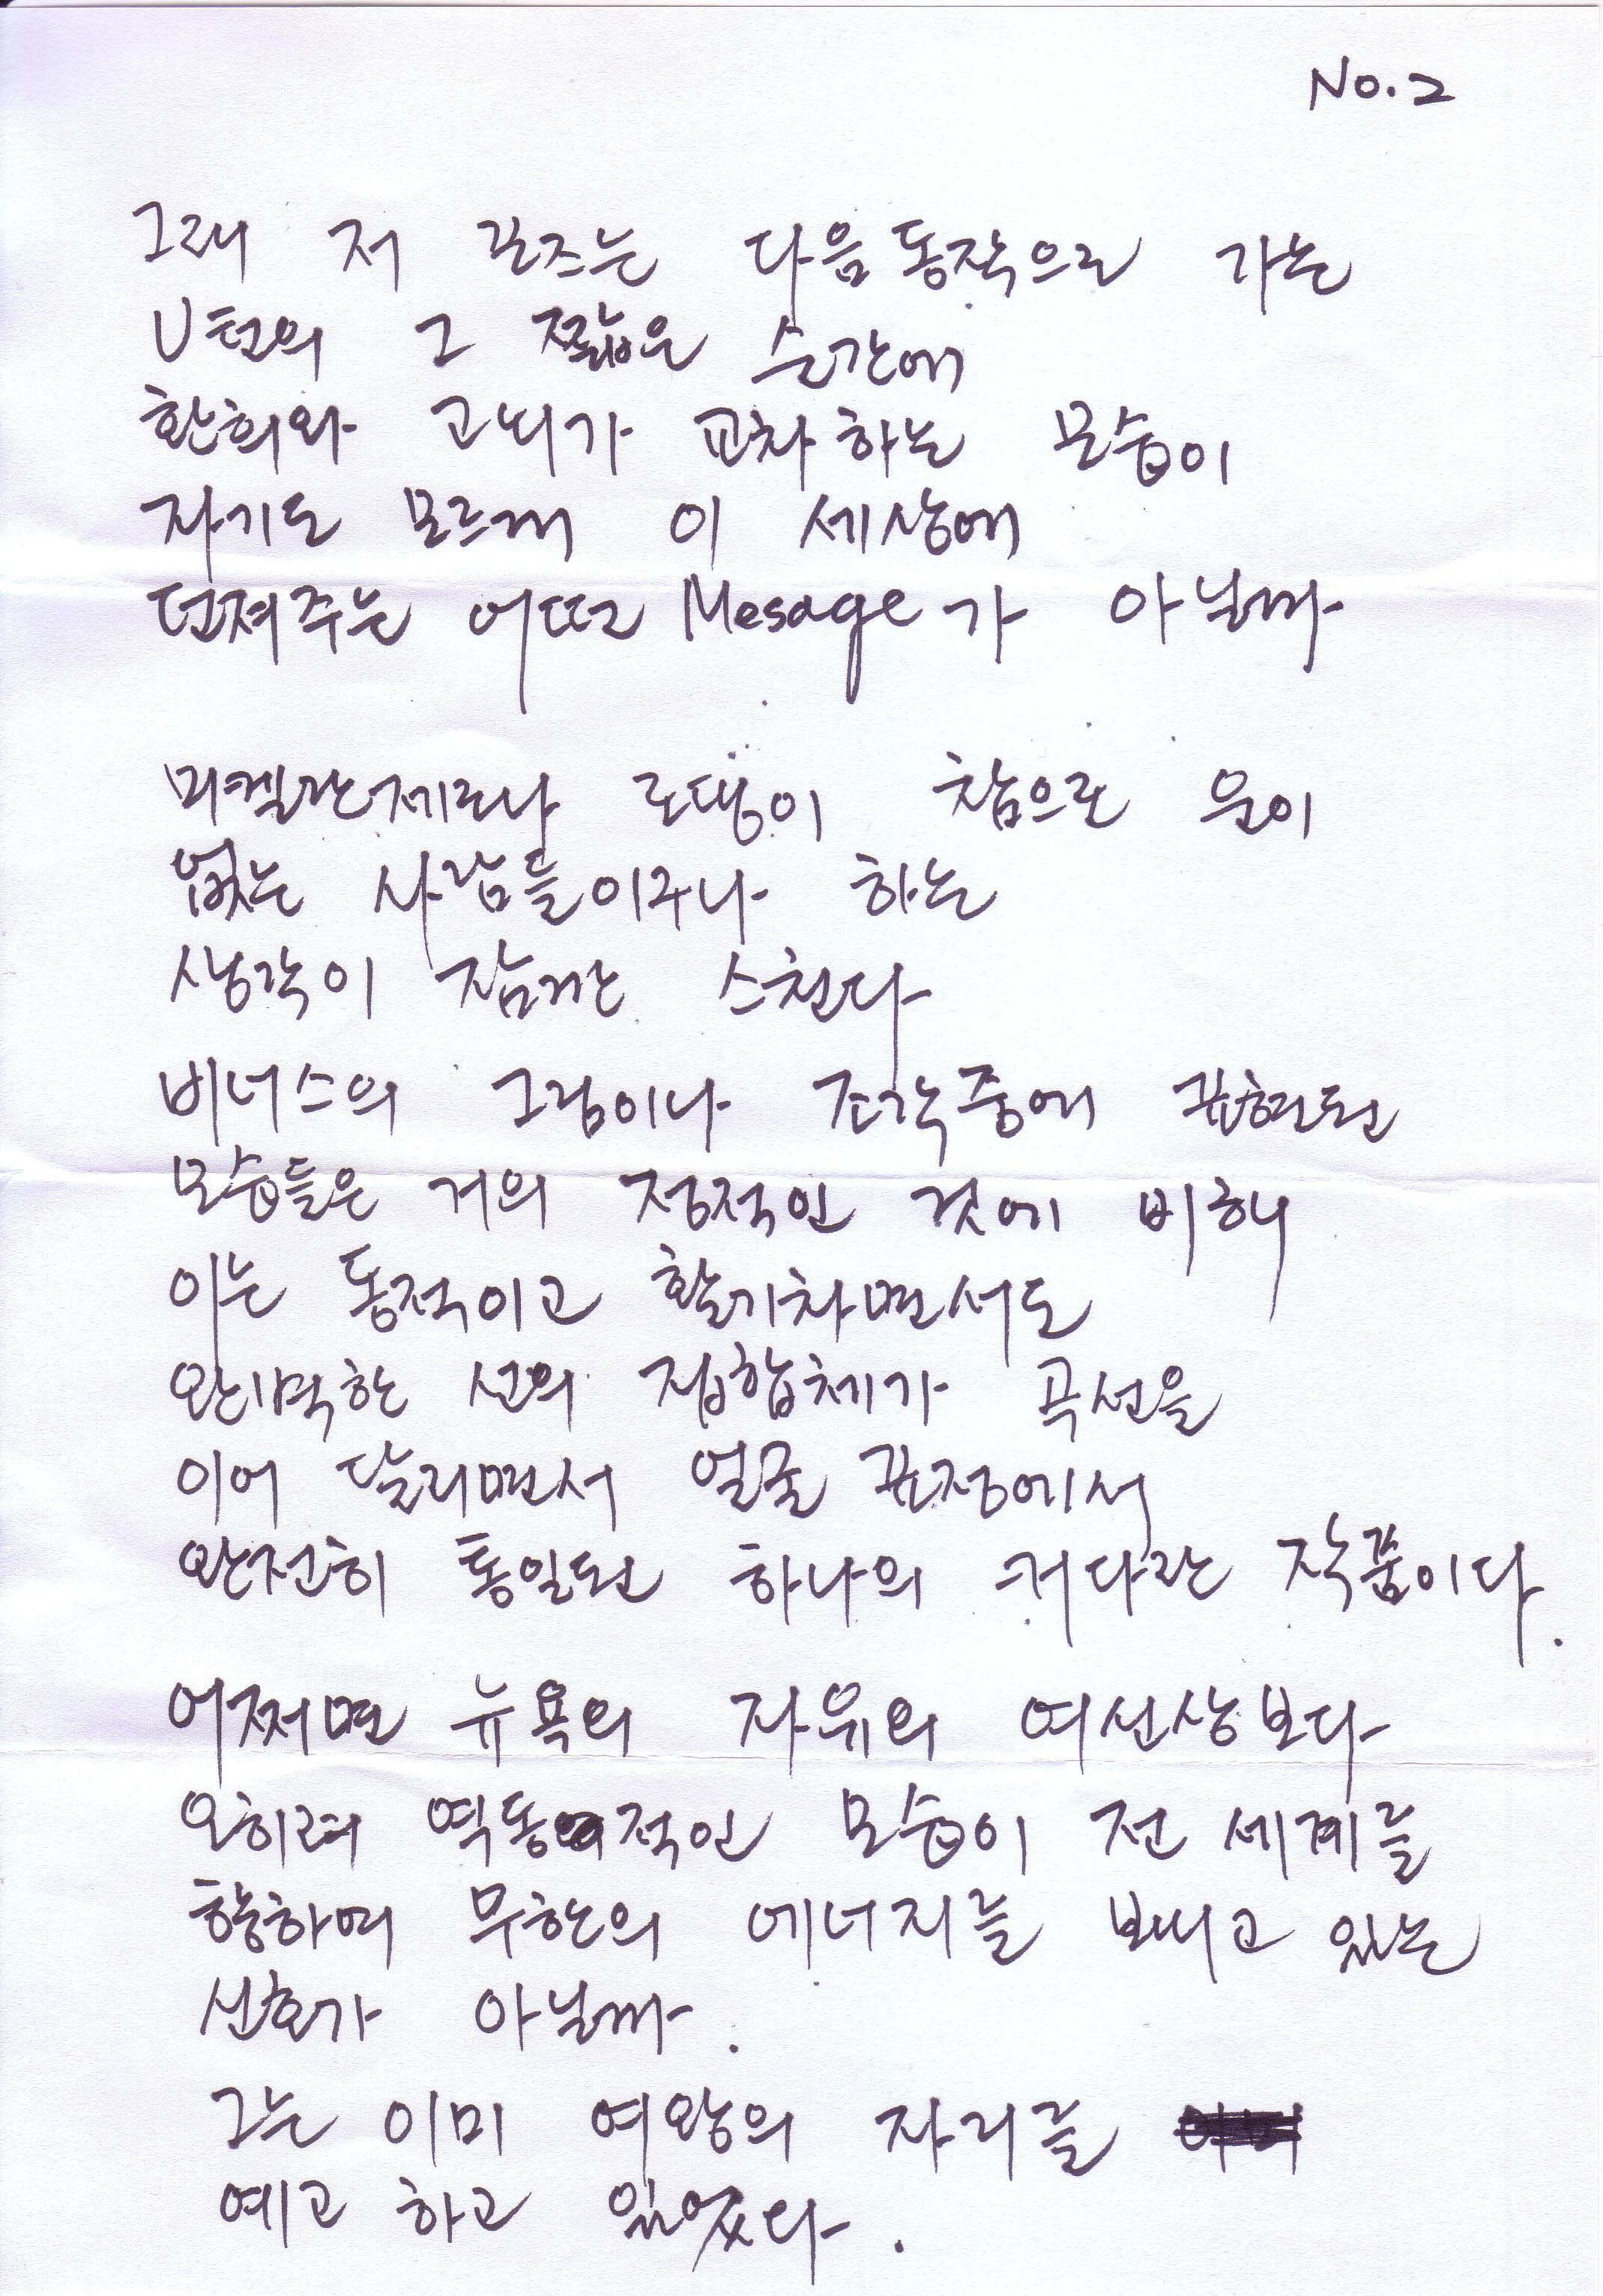 No.2
그래 저 포즈는 다음동작으로 가는
U턴의 그 짧은 순간에
환희와 고뇌가 교차하는 모습이
자기도 모르게 이 세상에
던져주는 어떤 Mesage가 아닐까
미켈란제로나 로댕이 참으로 운이
없는 사람들이구나 하는
생각이 잠깐 스친다
비너스의 그림이나 조각중에 표현된
모습들은 거의 정적인 것에 비해
이는 동적이고 활기차면서도
완벽한 선의 집합체가 곡선을
이어 달리면서 얼굴 표정에서
완전히 통일된 하나의 커다란 작품이다.
어쩌면 뉴욕의 자유의 여신상보다
오히려 역동적인 모습이 전 세계를
향하여 무한의 에너지를 보내고 있는
신호가 아닐까.
그는 이미 여왕의 자리를
예고 하고 있었다.